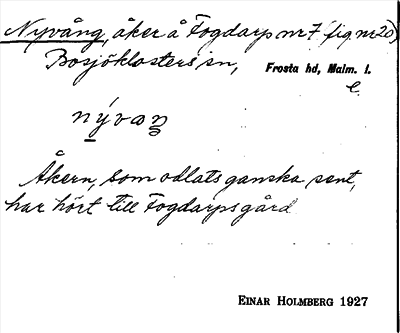 Nyvång, åker å Fogdarp nr 7 (fig nr 20)
Bosjöklosters sn, Frosta hd, Malm. l.
nývaŋ
Åkern, som odlats ganska sent,
har hört till Fogdarpsgård
EINAR HOLMBERG 1927